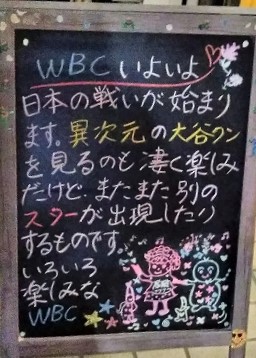 WBCいよいよ
日本の戦いが始まり
ます。異次元の大谷クン
を見るのも凄く楽しみ
だけど、またまた別の
スターが出現したり
するものです。
いろいろ
楽しみな
WBC